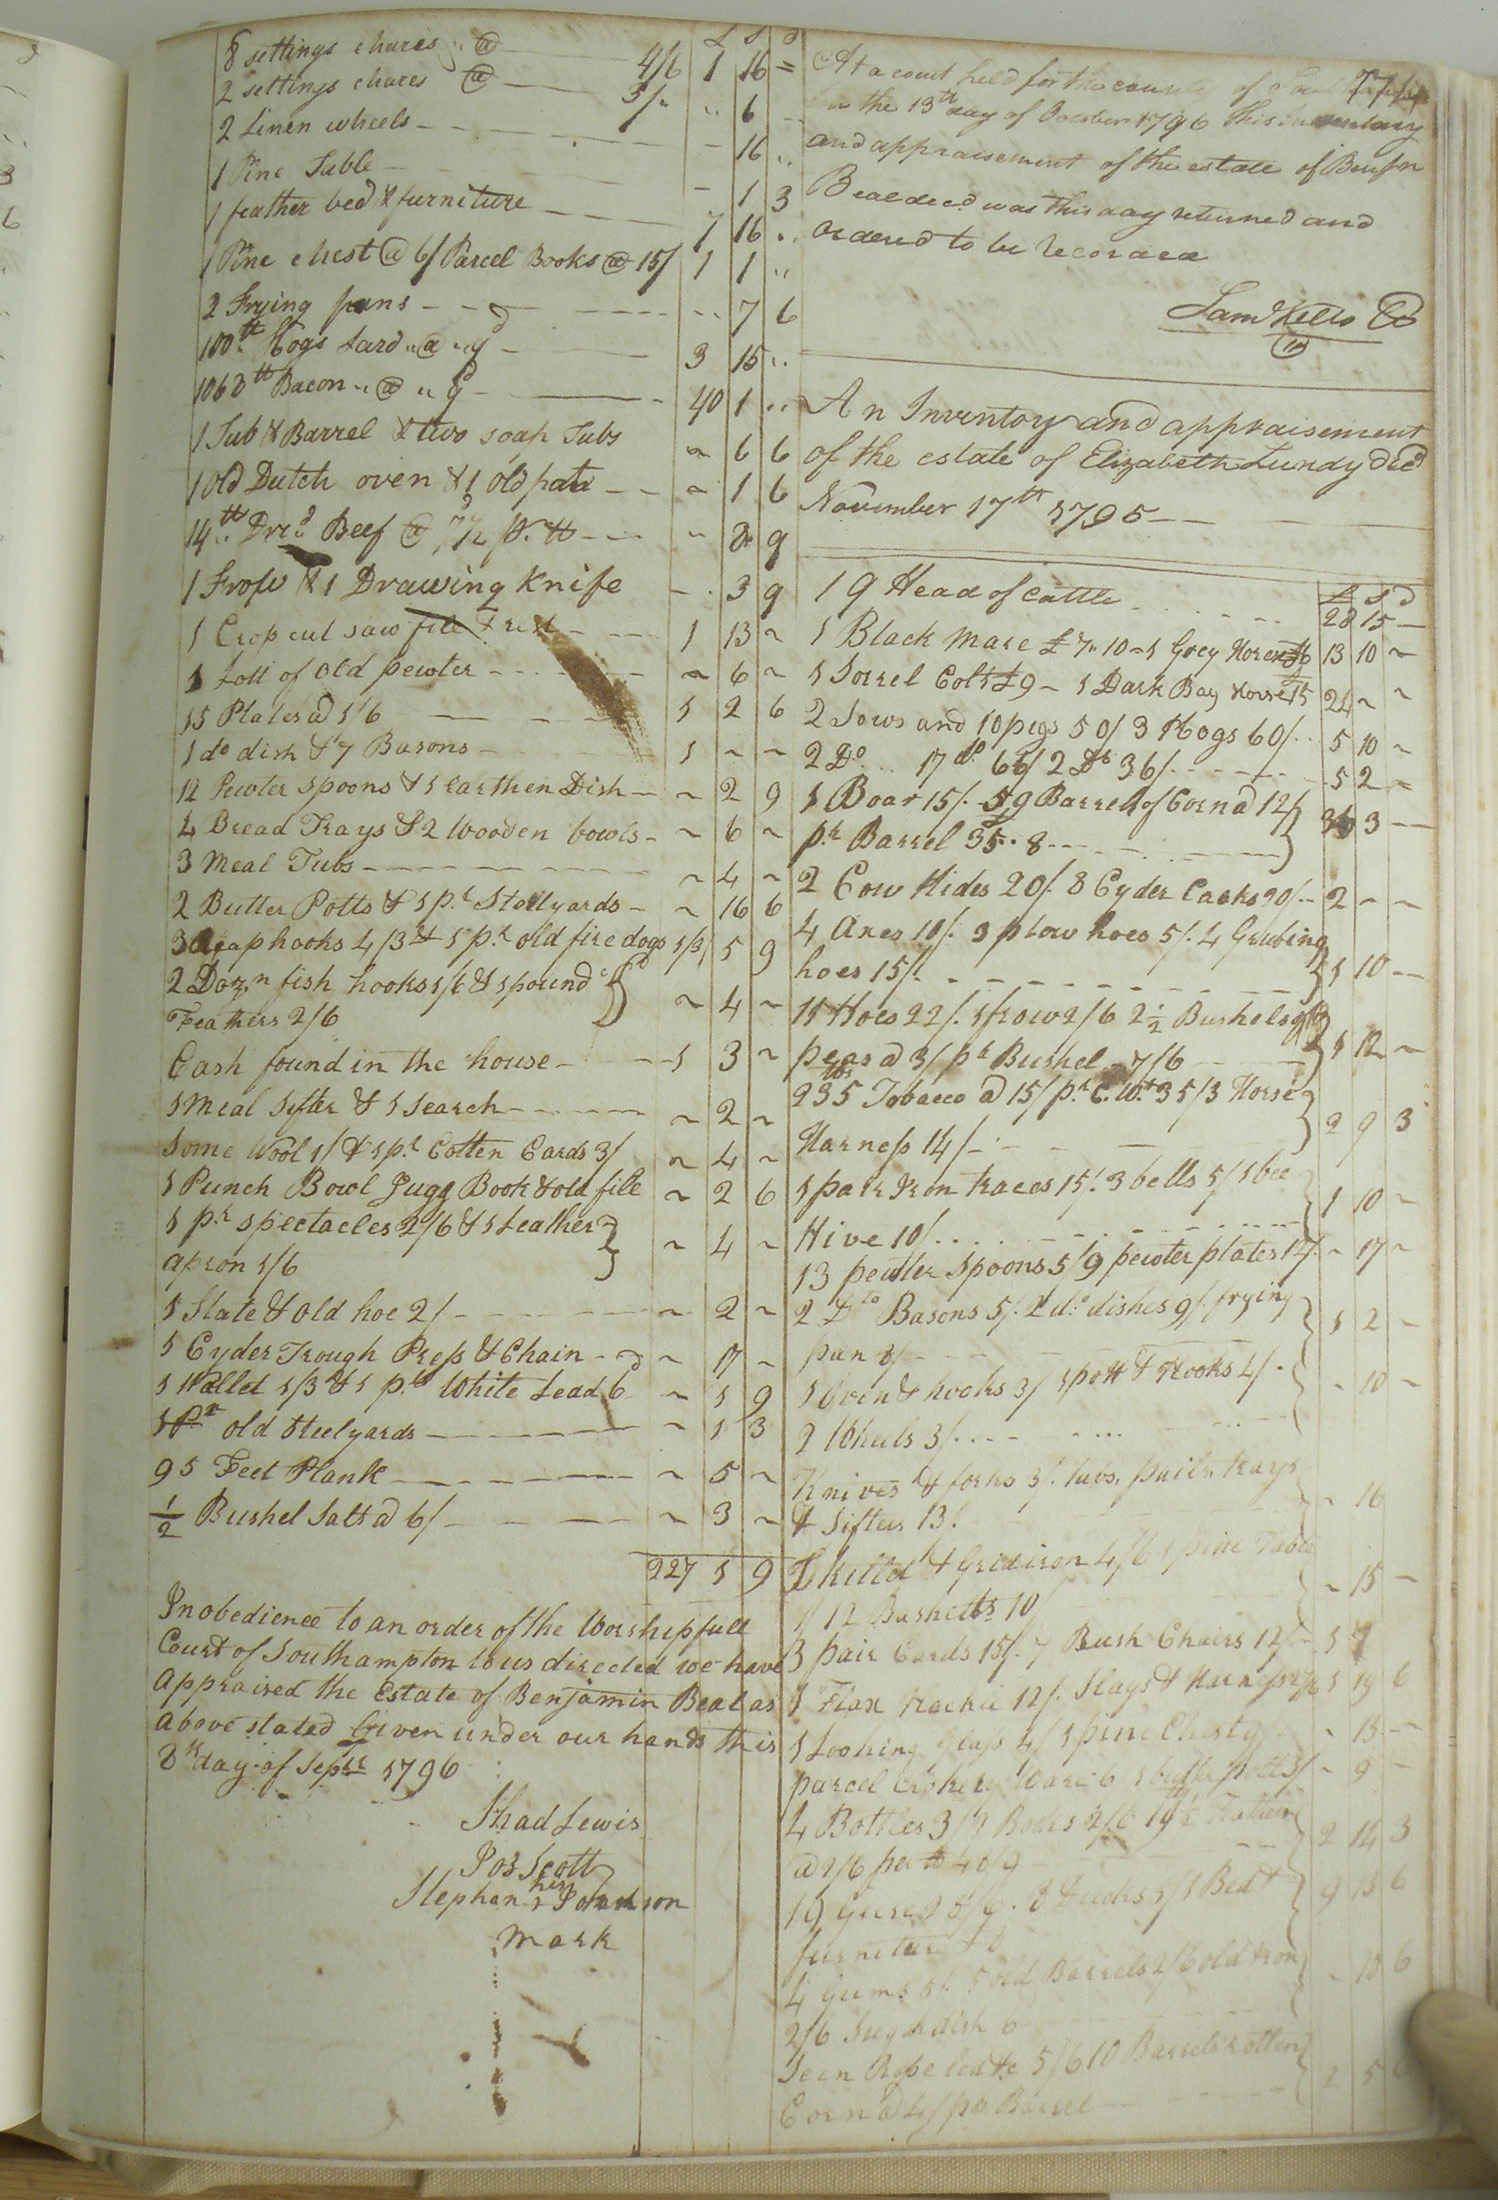 £ S d
8 settings chares @ 4/6 1 16 =
2 settings chares @ 3/" " 6
2 Linen wheels - 16 "
1 Pine Table - 1 3
1 feather bed & furniture 7 16 "
1 Pine chest @ 6/ Parcel Books @ 15/ 1 1 "
2 Frying pans 7 6
100 lb Hogs Lard @ 9d 3 15 "
1068 lb Bacon @ 9d 40 1 "
1 Tub & Barrel & two soap Tubs ~ 6 6
1 Old Dutch oven & 1 old pan ~ 1 6
14 lb Dried Beef @ 7 1/2 pr. lb " 8 9
1 Frow & 1 Drawing Knife - 3 9
1 Crop cut saw file & rest 1 13 ~
1 Lott of old pewter ~ 6 ~
15 Plates @ 1/6 1 2 6
1 do dish & 7 Basons 1 ~ ~
12 Pewter spoons & 1 Earthen Dish ~ 2 9
4 Bread Trays & 2 Wooden bowls ~ 6 ~
3 Meal Tubs ~ 4 ~
2 Butter Potts & 1 pr. Stellyards ~ 16 6
3 Reaphooks 4/3 & 1 pr. old fire dogs 1/3 5 9
2 Dozn fish hooks 1/6 & 1 pound
Feathers 2/6 ~ 4 ~
Cash found in the house 1 3 ~
1 Meal Sifter & 1 Search ~ 2 ~
Some Wool 1/ & 1 pr. Cotten Cards 3/ ~ 4 ~
1 Punch Bowl Jugg Book & old file ~ 2 6
1 pr. spectacles 2/6 & 1 Leather
apron 1/6 ~ 4 ~
1 Slate & old hoe 2/ ~ 2 ~
1 Cyder Trough Press & Chain ~ 17 ~
1 Wallet 1/3 & 1 White Lead 6d ~ 1 9
1 Pr old Steelyards ~ 1 3
95 Feet Plank ~ 5 ~
1/2 Bushel Salt @ 6/ ~ 3 ~
227 1 9
In obedience to an order of the Worshipfull
Court of Southampton to us directed we have
Appraised the Estate of Benjamin Beal as
above stated Given under our hands this
8th day of Septr 1796
Thad Lewis
Jos Scott
his
Stephen Johnson
mark
At a court held for the county of Southampton
the 13th day of October 1796 This Inventory
and appraisement of the estate of Benjn
Beal decd. was this day returned and
ordered to be recorded
Saml Kello CC
An Inventory and appraisement
of the estate of Elizabeth Lundy Decd
November 17th 1795
£ S d
19 Head of Cattle 28 15 -
1 Black Mare £7"10 - 1 Grey Horse £6 13 10 ~
1 Sorrel Colt £9 - 1 Dark Bay Horse 15 24 ~ ~
2 Sows and 10 pigs 50/ 3 Hogs 60/ 5 10 ~
2 Do 17 do 66/ 2 Do 36/ 5 2 ~
1 Boar 15/. 59 Barrels of Corn @ 12/
pr. Barrel 35"8 36 3 -
2 Cow Hides 20/. 8 Cyder Casks 20/ 2 ~ ~
4 Axes 10/. 3 plow hoes 5/. 4 Grubing
hoes 15/. 1 10 -
11 Hoes 22/. 1 frow 2/6 2 1/2 Bushels
peas @ 3/ pr Bushel 7/6 1 12 ~
235 lbs Tobacco @ 15/ pr. C. Wt. 35/3 Horse
Harness 14/ 2 9 3
1 pair Iron traces 15/. 3 bells 5/ 1 bee
Hive 10/ 1 10 ~
13 pewter Spoons 5/ 9 pewter plates 12/ ~ 17 ~
2 Do Basons 5/. 2 do. dishes 9/. frying
pan 8/ 1 2 -
1 Oven & hooks 3/ 1 pott & Hooks 4/.
2 Wheels 3/ - 10 -
Knives & forks 3/. tubs, pails, trays
& Sifters 13/. ~ 16
Skillet & Gridiron 4/6 1 pine Table
1/ 12 Basketts 10/ ~ 15 -
3 pair Cards 15/. 7 Rush Chairs 12/ 1 7
1 Flax Hackle 12/. Slays & Harness 27/6 1 19 6
1 Looking Glass 4/ 1 pine Chest 9 ~ 13 -
parcel Crokery Ware 6 1 butter pott 3/ ~ 9 -
4 Bottles 3/9 Books 2/6 19 1/2 lb Feathers
@ 2/6 per lb 48/9 2 14 3
19 Geese 28/6. 3 Ducks 5/ 1 Bed &
furniture £8 9 13 6
4 Gums 5/. 5 old Barrels 2/6 old Iron
2/6 Sugar dish 6 ~ 10 6
Sein Rope lead &c 5/6 10 Barrels rotten
Corn @ 4/ pr Barrel 2 5